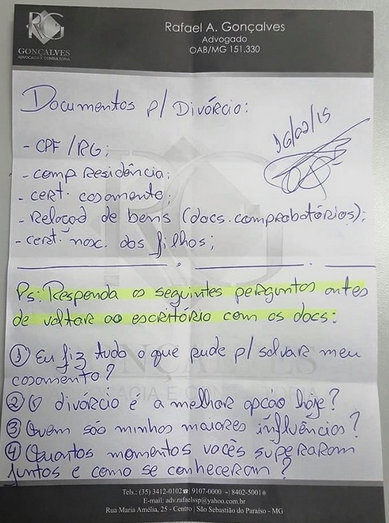 RG
GONÇALVES
ADVOCACIA E CONSULTORIA
Rafael A. Gonçalves
Advogado
OAB/MG 151.330
Documentos p/ Divórcio:
16/02/15
- CPF/RG;
- comp Residência;
- cert. casamento;
- Relação de bens (docs. comprobatórios);
- cert. nasc. dos filhos;
Ps: Responda as seguintes perguntas antes
de voltar ao escritório com os docs:
① Eu fiz tudo o que pude p/ salvar meu
casamento?
② O divórcio é a melhor opção hoje?
③ Quem são minhas maiores influências?
④ Quantos momentos vocês superaram
juntos e como se conheceram?
Tels.: (35) 3412-0102 9107-0000 8402-5001
E-mail: adv.rafaelssp@yahoo.com.br
Rua Maria Amélia, 25 - Centro | São Sebastião do Paraíso - MG